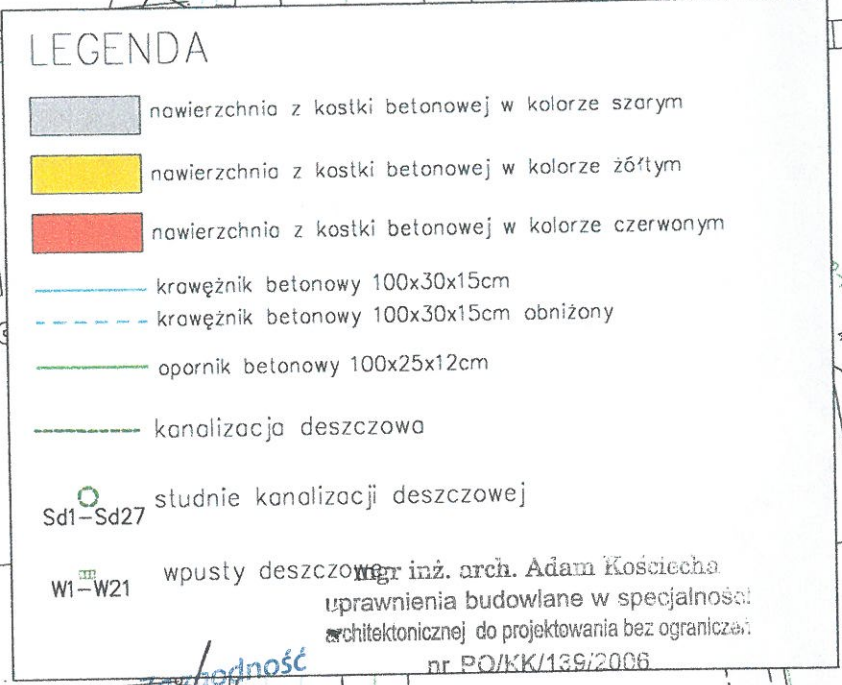 LEGENDA
nawierzchnia z kostki betonowej w kolorze szarym
nawierzchnia z kostki betonowej w kolorze żółtym
nawierzchnia z kostki betonowej w kolorze czerwonym
krawężnik betonowy 100x30x15cm
krawężnik betonowy 100x30x15cm obniżony
opornik betonowy 100x25x12cm
kanalizacja deszczowa
studnie kanalizacji deszczowej
Sd1-Sd27
wpusty deszczowe
W1-W21
mgr inż. arch. Adam Kościecha
uprawnienia budowlane w specjalności
architektonicznej do projektowania bez ograniczeń
nr PO/KK/139/2006